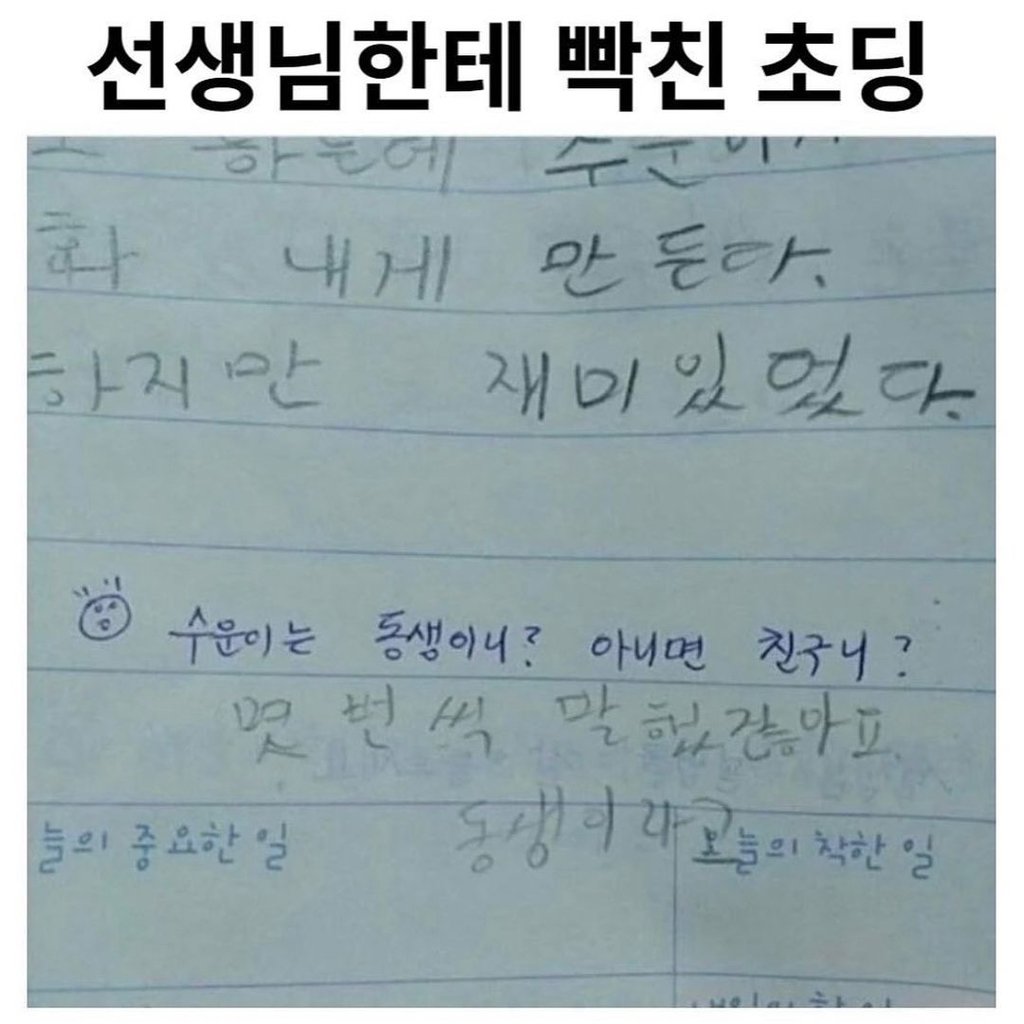 선생님한테 빡친 초딩
하는데
화 내게 만든다.
하지만 재미있었다.
수운이는 동생이니? 아니면 친구니?
몇 번씩 말했잖아요
동생이라고
늘의 중요한 일
오늘의 착한 일